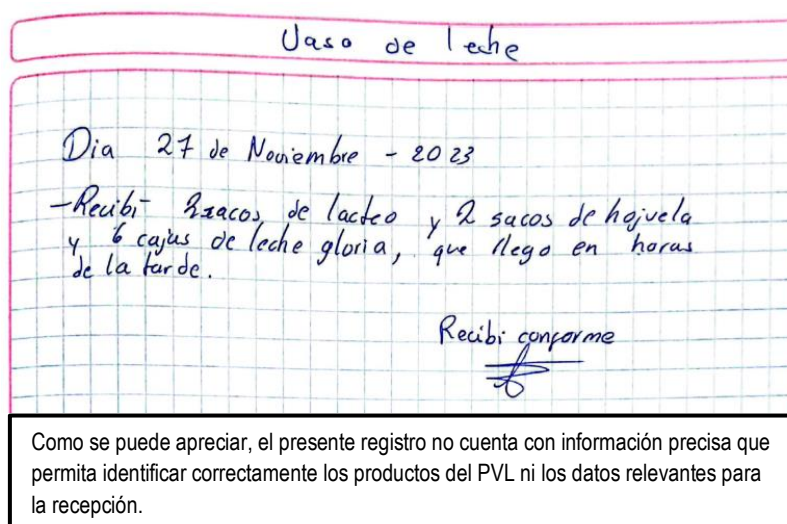 Vaso de leche
Dia 27 de Noviembre - 2023
-Recibi 2 sacos de lacteo y 2 sacos de hojuela
y 6 cajas de leche gloria, que llego en horas
de la tarde.
Recibi conforme
Como se puede apreciar, el presente registro no cuenta con información precisa que
permita identificar correctamente los productos del PVL ni los datos relevantes para
la recepción.